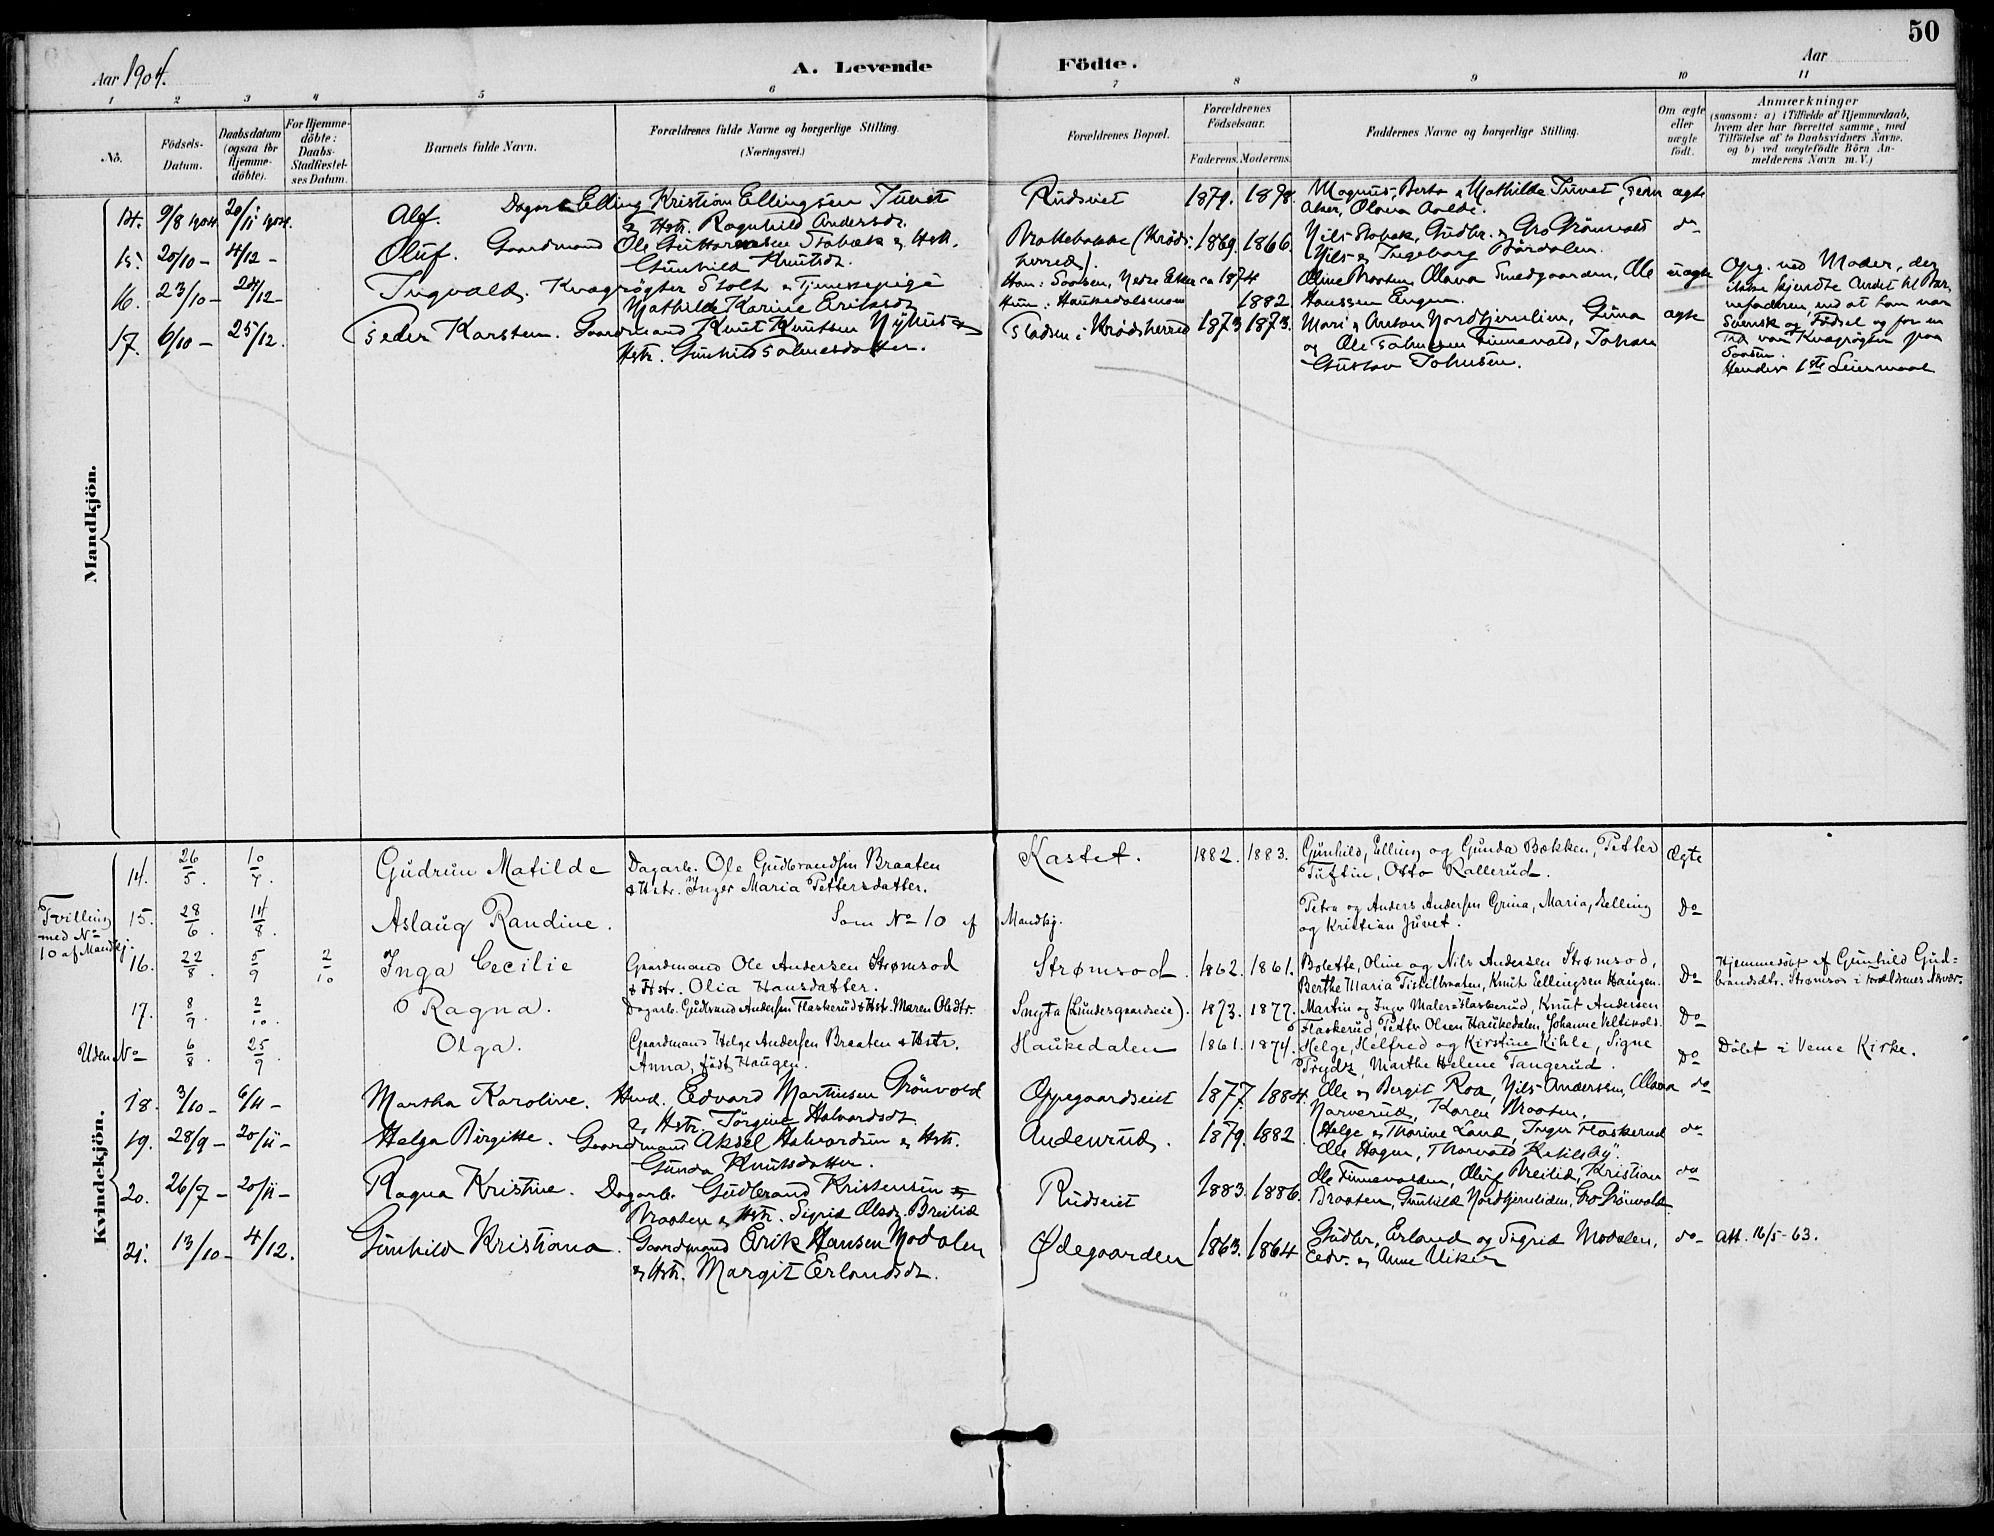 50
Aar 1904.
A. Levende Födte.
Aar
1 2 3 4 5 6 7 8 9 10 11
No.
Födsels-Datum.
Daabsdatum (ogsaa for Hjemme-döbte).
For Hjemme-döbte: Daabs-Stadfæstel-ses Datum.
Barnets fulde Navn.
Forældrenes fulde Navne og borgerlige Stilling.
(Næringsvei.)
Forældrenes Bopæl.
Forældrenes Födselsaar.
Faderens. Moderens.
Faddernes Navne og borgerlige Stilling.
Om ægte eller uægte födt.
Anmærkninger
(saasom: a) i Tilfælde af Hjemmedaab,
hvem der har forrettet samme, med
Tilföielse af to Daabsvidners Navne,
og b) ved uægtefödte Börn An-
melderens Navn m. V.)
Mandkjön.
14. 9/8 1904 20/11 1904. Alf. Dagarb. Elling Kristian Ellingsen Juvet Rudseiet 1879. 1878. Magnus, Berta & Mathilde Juvet, ægte
& Hstr. Ragnhild Andersdr.
15. 20/10 – 4/12 – Oluf. Gaardmand Ole Guttormsen Stabæk & Hstr. (Kröds- 1869. 1866. Nils Stabæk, Gudbr. & Gro Grönvold do
Gunhild Knutsdr. herred). Nils & Ingeborg
16. 23/10 – 26/12 – Ingvald. Kvægrögter & Tjenestepige Ham: Saasen, Nedre Eker ca 1874 Oline Braaten, Olava Smedgaarden, Ole uægte
Mathilde Karine Eriksdr Hun: Haukedalsmoen 1882 Hanssen Engen.
Opg. ved Moder, der
ikke kjendte Andet til Bar-
nefaderen end at han var
Svensk af Födsel og for en
Tid var Kvægrögter paa
Saasen.
Hendes 1ste Leiermaal
17. 6/10 – 25/12. Peder Karsten. Gaardmand Knut Knutsen Nyhus & Pladsen i Krödsherred 1873 1873. Mari & Anton Nordtjernlien, Guna ægte
Hstr. Gunhild og Ole Finnevold, Johan
Gustav Johnsen.
Kvindekjön.
14. 26/5. 10/7. Gudrun Matilde Dagarb. Ole Gudbrandsen Braaten Kastet. 1882. 1883. Gunhild, Elling og Gunda Bækken, Petter Ægte
& Hstr. Inger Maria Pettersdatter. Tuftin, Otto Kallerud.
Tvilling med No 10 af Mandkj.
15. 28/6. 14/8. Aslaug Randine. Som No 10 af Mandkj. Petra og Anders Andersen Grina, Maria, Elling Do
og Kristian Juvet.
16. 22/8. 5/9 2/10 Inga Cecilie Gaardmand Ole Andersen Strømsod Strømsod. 1862. 1861. Bolette, Oline og Nils Andersen Strømsod, Do Hjemmedöbt af Gunhild Gud-
& Hstr. Olia Hansdatter. Berthe Maria Tistelbraaten, Knut Ellingsen Haugen. brandsdtr. Strømsod i Forældrenes Nærvær.
17. 8/9. 2/10. Ragna. Dagarb. Gudbrand Andersen Flaskerud & Hstr. Maren Olsdtr. Snyta (Lundersgaardseie). 1873. 1877. Martin og Inger Flaskerud, Knut Andersen Do
Flaskerud, Petter Olsen Haukedalen, Johanne
Uden No 6/8. 25/9. Olga. Gaardmand Helge Andersen Braaten & Hstr. Haukedalen 1861. 1874. Helge, Helfred og Kirstine Kihle, Signe Do Döbt i Veme Kirke.
Anna, født Haugen. Prydz, Marthe Helene Tangerud.
18. 3/10 – 6/11 – Martha Karoline. Hmd. Edvard Martinsen Grönvold Oppegaardseiet 1877. 1884. Ole & Bergit Roa, Nils Anderssen, Olava do
& Hstr. Jörgine Halvardsdr. Narverud, Karen Braaten.
19. 28/9 – 20/11 – Helga Birgitte. Gaardmand Aksel Halvardsen & Hstr. Andenrud. 1879. 1882. Helge & Thorine Land, Inger Flaskerud do
Gunda Knutsdatter. Ole Hagen, Thorvald Ketilsby.
20. 26/7 – 20/11 – Ragna Kristine. Dagarb. Gudbrand Kristensen Rudseiet 1883. 1886. Ole Finnevolden, Oluf Breilid, Kristian do
Braaten & Hstr. Sigrid Olsdr. Breilid Braaten, Gunhild Nordtjernliden, Gro Grönvold.
21. 13/10 – 4/12. Gunhild Kristiana. Gaardmand Erik Hansen Modalen Ødegaarden 1863. 1864 Gudbr., Erland og Sigrid Modalen, do – Att. 16/5-63.
& Hstr. Margit Erlandsdr. Edv. & Anne Viker